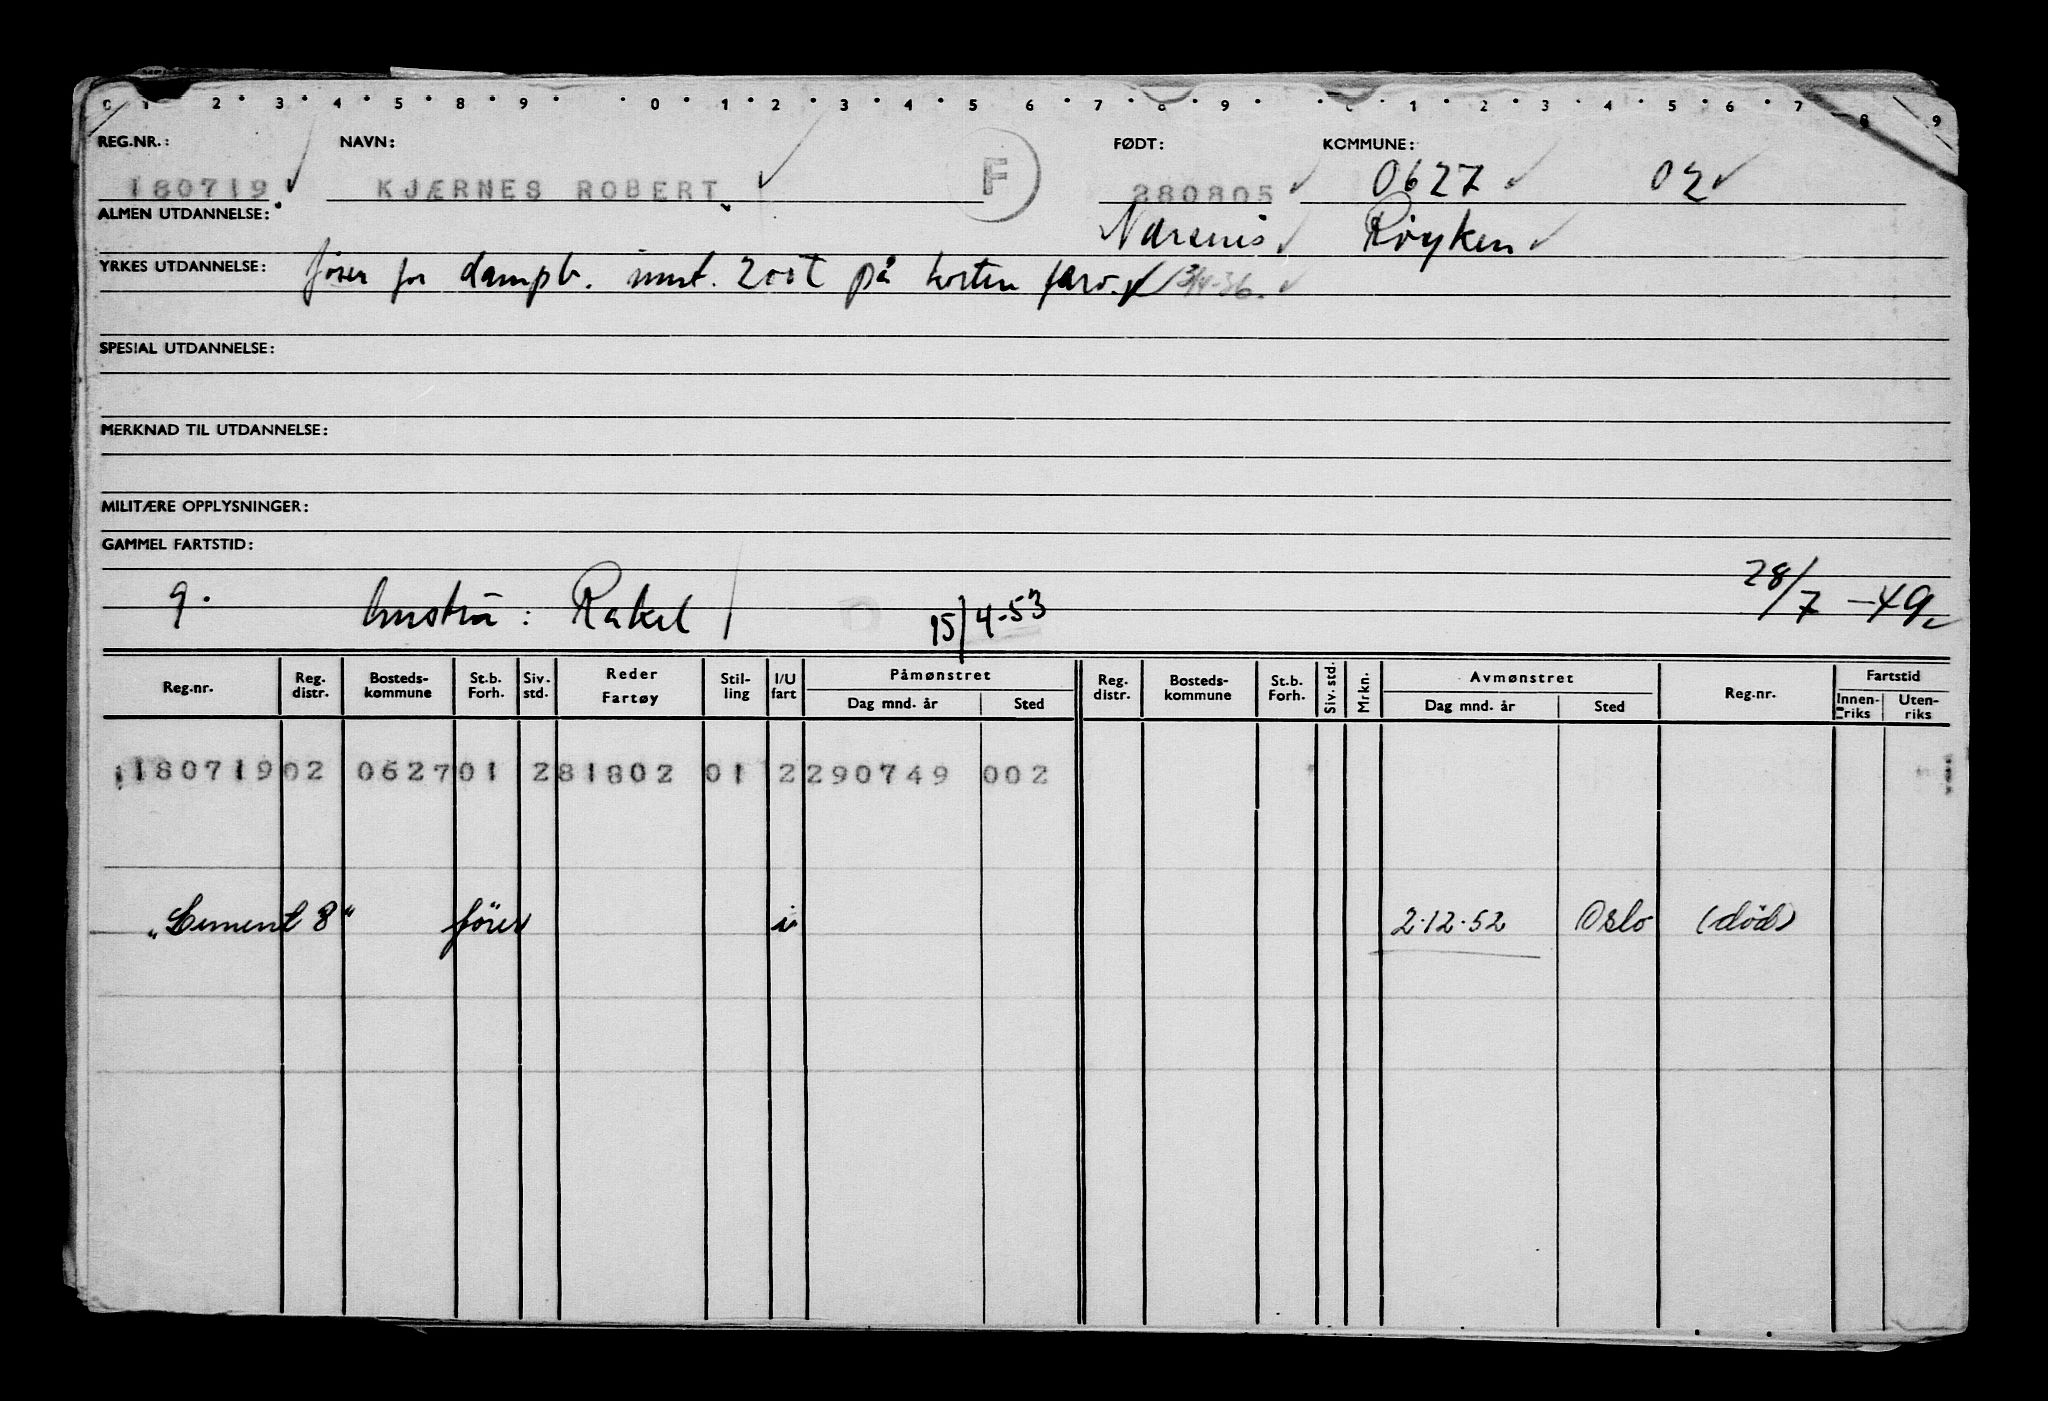 0 1 2 3 4 5 8 9 0 1 2 3 4 5 6 7 8 9 0 1 2 3 4 5 6 7 8 9
REG.NR.: NAVN: FØDT: KOMMUNE:
180719 KJÆRNES ROBERT F 280805 0627 02
ALMEN UTDANNELSE: Nærsnes Røyken
YRKES UTDANNELSE: fører for dampb. innt. 200t på korten farv. 3/4-36.
SPESIAL UTDANNELSE:
MERKNAD TIL UTDANNELSE:
MILITÆRE OPPLYSNINGER:
GAMMEL FARTSTID:
g. hustru: Rakel 15/4-53 28/7-49
Reg.nr. Reg. distr. Bosteds-kommune St.b. Forh. Siv. std. Reder Fartøy Stil-ling I/U fart Påmønstret Dag mnd. år Sted Reg. distr. Bosteds-kommune St.b. Forh. Siv. std. Mrkn. Avmønstret Dag mnd. år Sted Reg.nr. Fartstid Innen-riks Uten-riks
18071902 062701 281802 01 2290749 002
"Cement 8" fører i 2.12.52 Oslo (død)